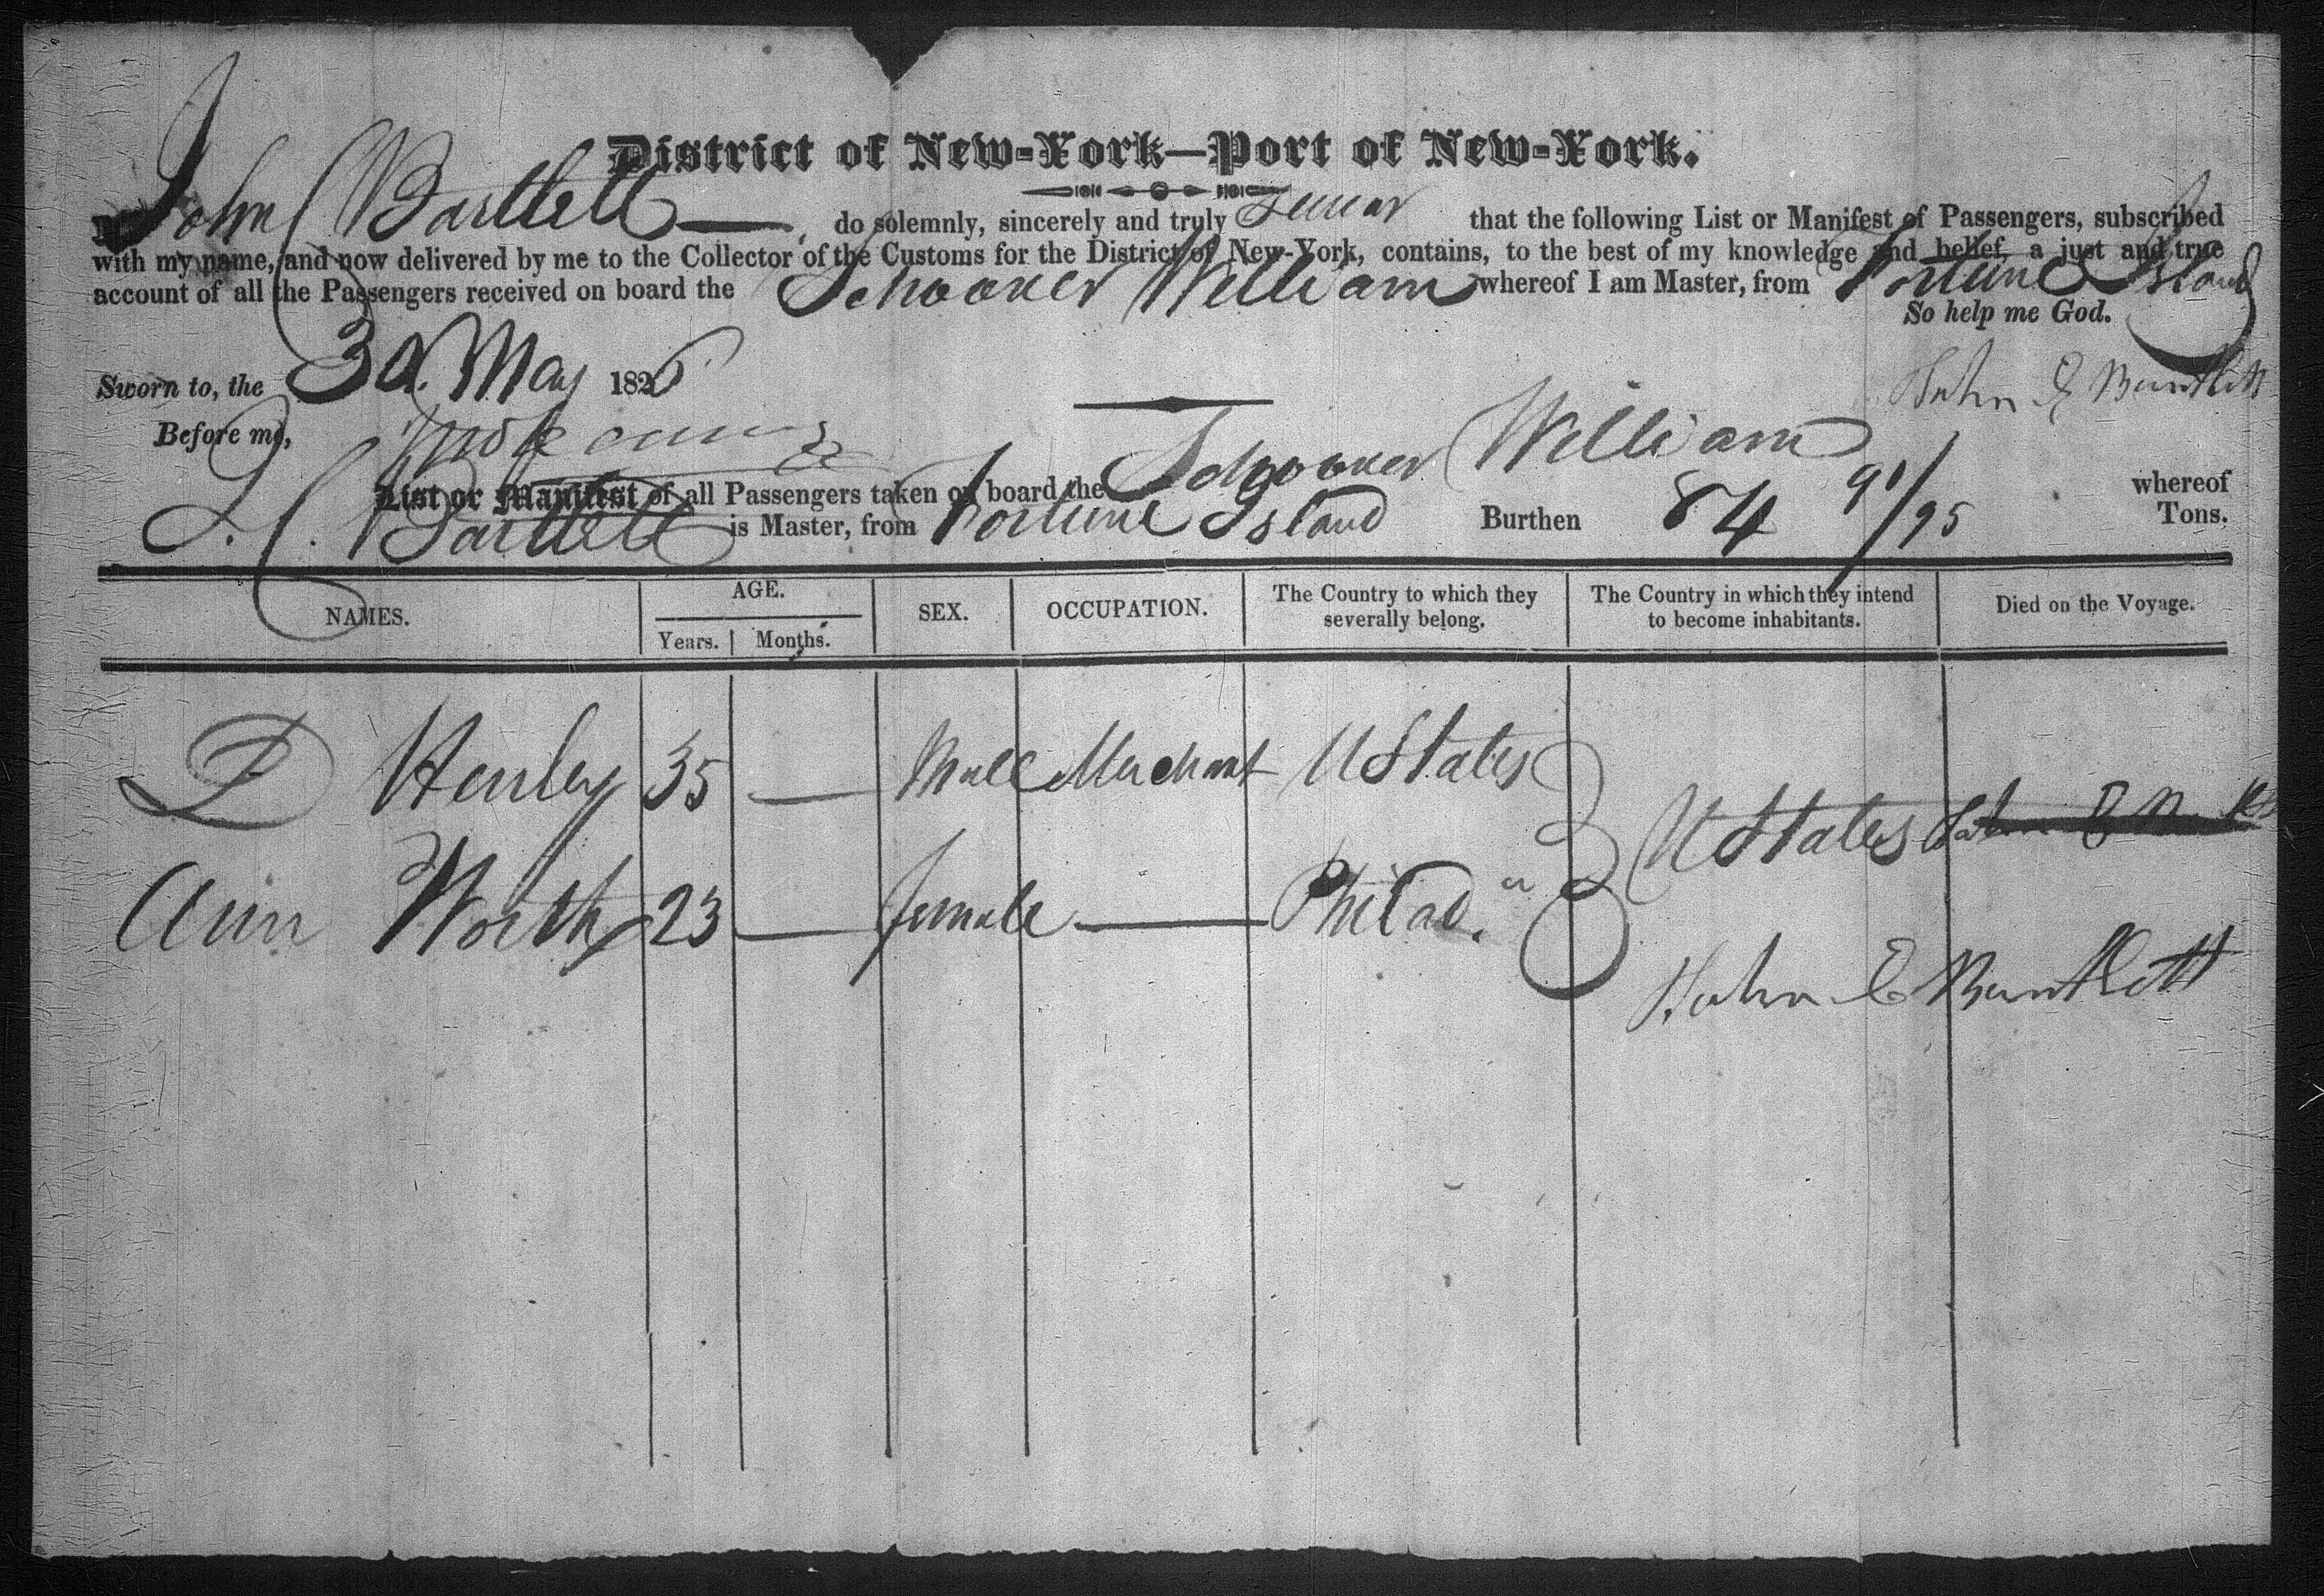 District of New-York—Port of New-York.
I, John Bartlett, do solemnly, sincerely and truly Swear that the following List or Manifest of Passengers, subscribed
with my name, and now delivered by me to the Collector of the Customs for the District of New-York, contains, to the best of my knowledge and belief, a just and true
account of all the Passengers received on board the Schooner William whereof I am Master, from Fortune Island
So help me God.
Sworn to, the 30. May 1826
John E Bartlett
Before me,
List or Manifest of all Passengers taken on board the Schooner William whereof
Bartlett is Master, from Fortune Island Burthen 84 91/95 Tons.
NAMES. AGE. Years. Months. SEX. OCCUPATION. The Country to which they severally belong. The Country in which they intend to become inhabitants. Died on the Voyage.
D Henley 35 — Male Merchant U States
U States
Ann Worth 23 — female — Philad.a
John E Bartlett